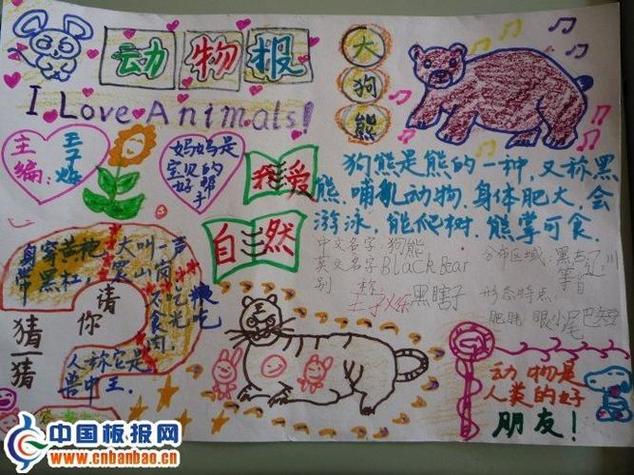 动物报
I Love Animals!
大
狗
熊
主编：
妈妈是
宝贝的
好帮手
我爱
自然
狗熊是熊的一种，又称黑
熊，哺乳动物，身体肥大，会
游泳，能爬树，熊掌可食.
中文名字：狗熊
英文名字Black Bear
别称
黑瞎子
分布区域：黑
等省
形态特点：
肥胖 眼小尾巴短
身穿黄袍
带黑杠，
大叫一声
震山岗
不食
粮吃
肉，
人称它是
兽中王.
请你
猜一猜
动物是
人类的好
朋友！
中国板报网
www.cnbanbao.cn